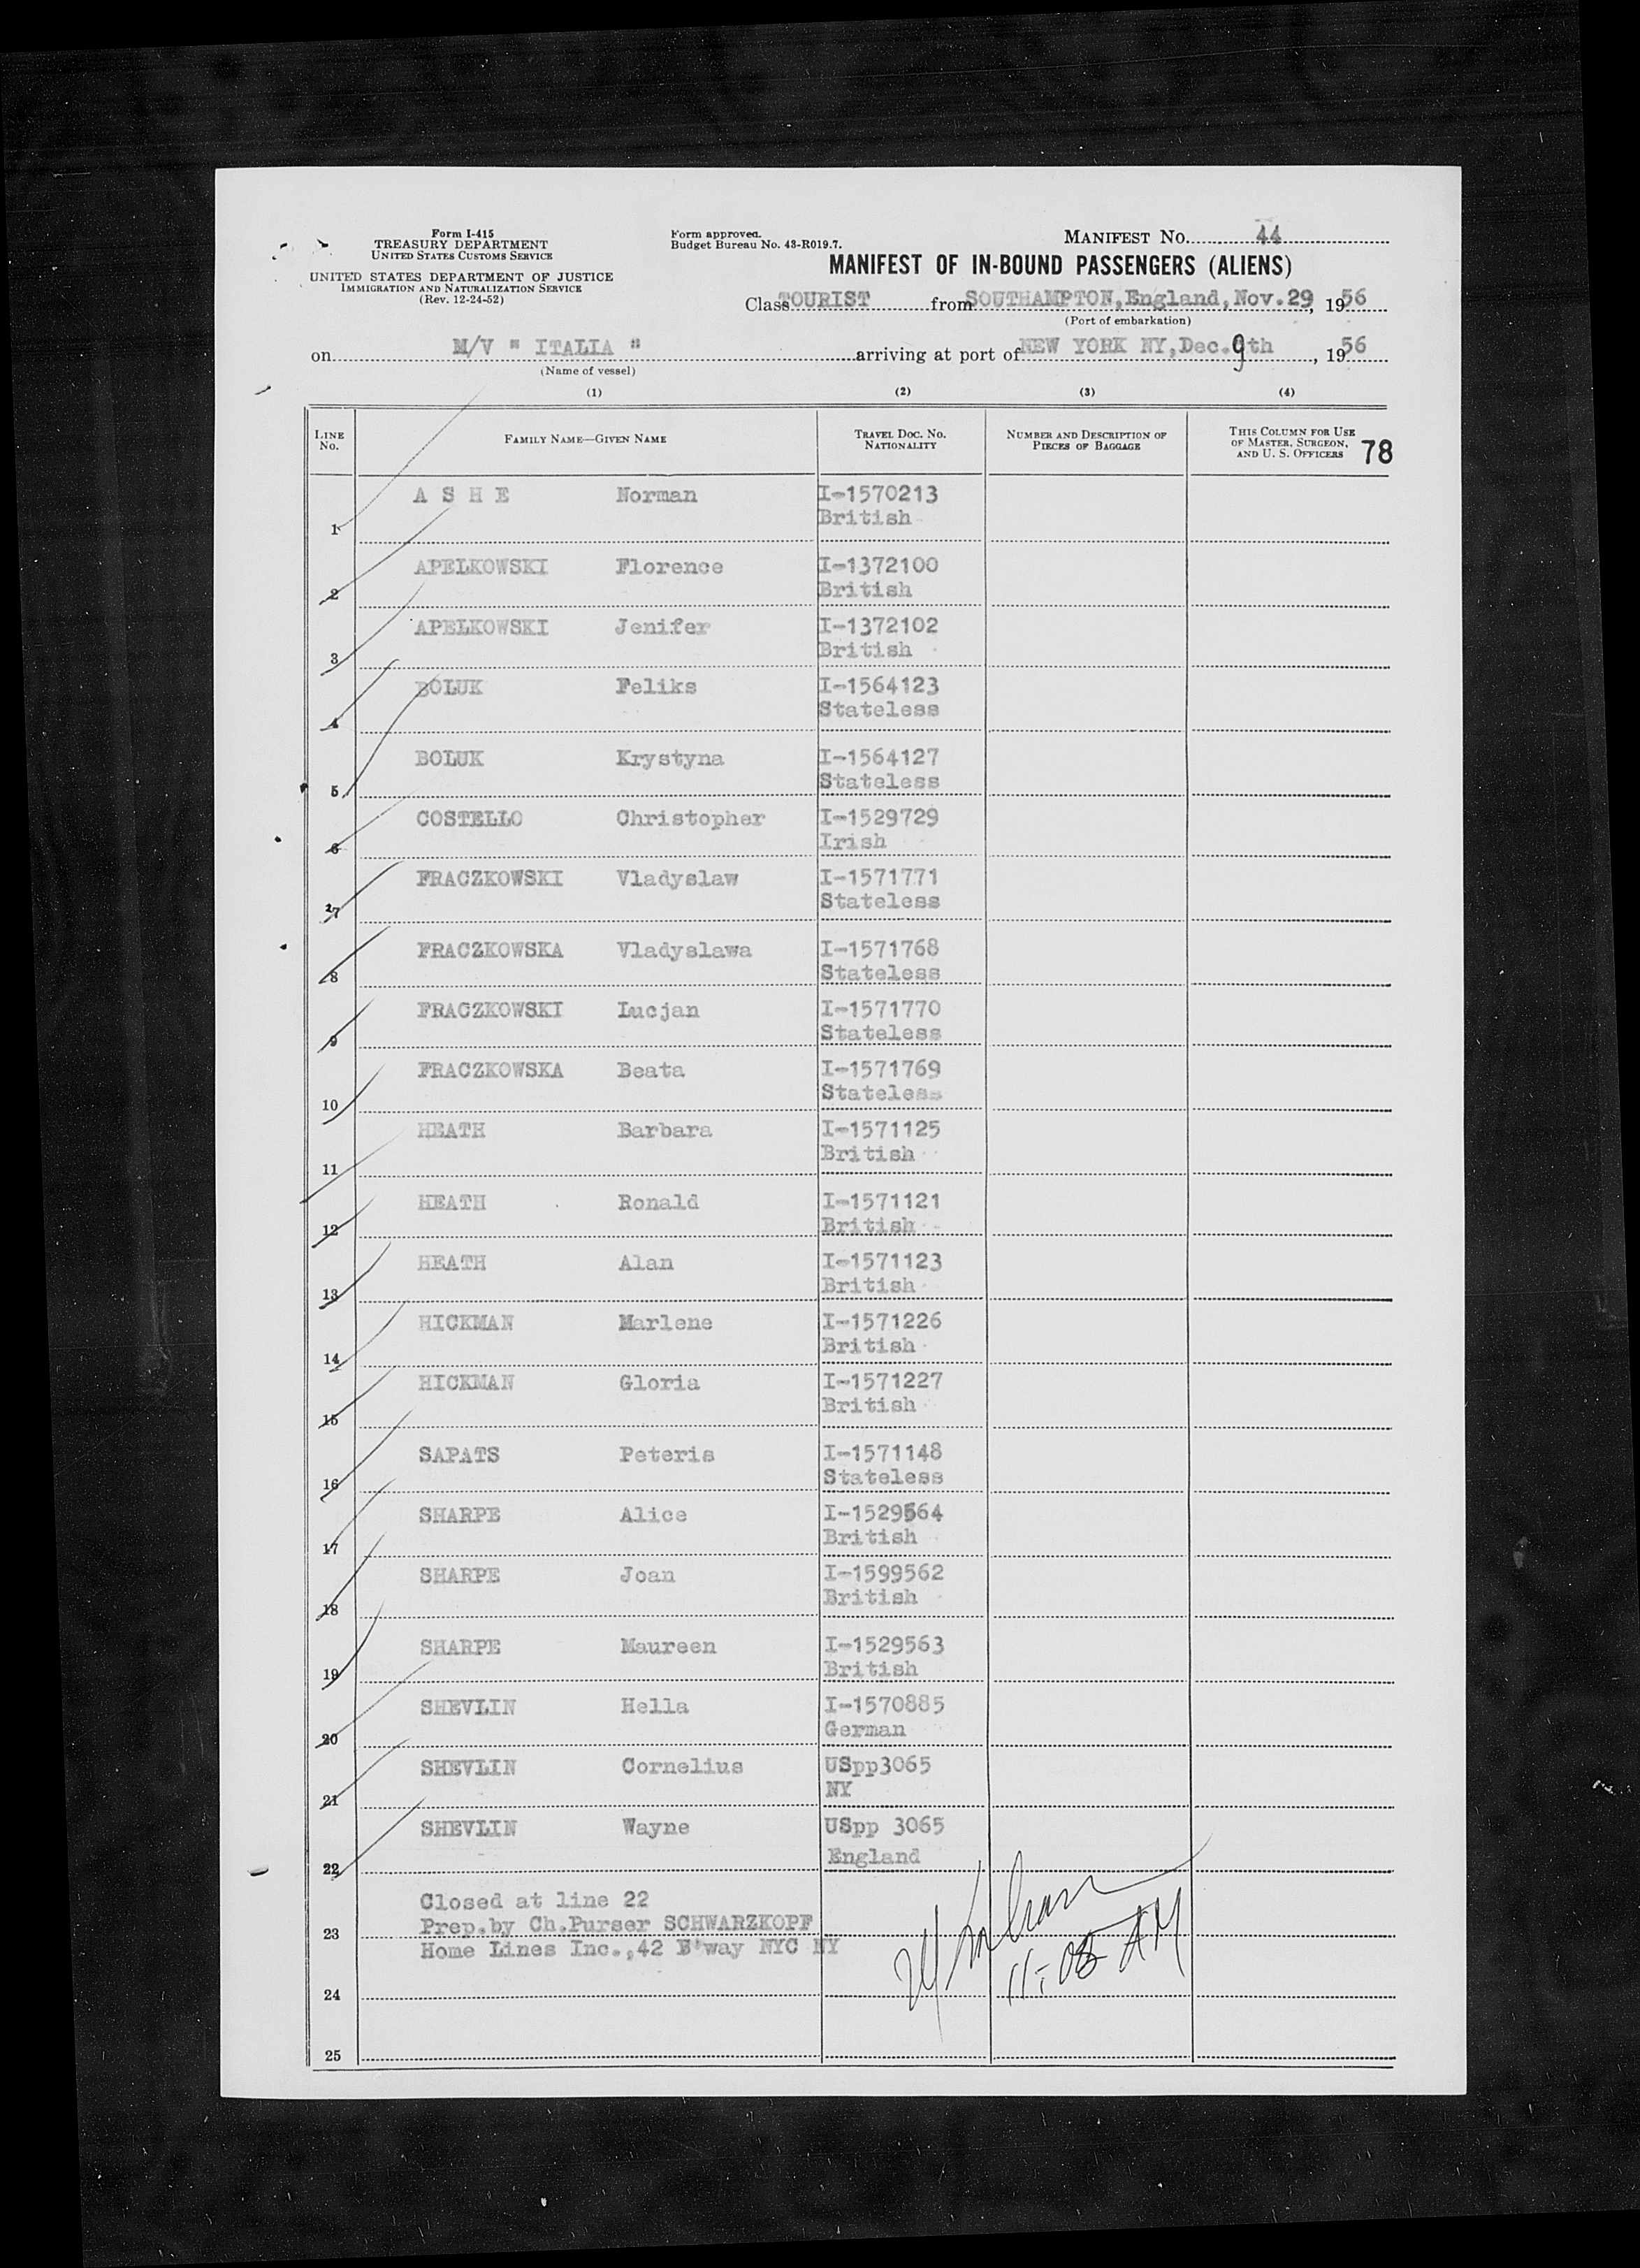 Form I-415
TREASURY DEPARTMENT
UNITED STATES CUSTOMS SERVICE
UNITED STATES DEPARTMENT OF JUSTICE
IMMIGRATION AND NATURALIZATION SERVICE
(Rev. 12-24-52)
Form approved.
Budget Bureau No. 43-R019.7.
MANIFEST NO. 44
MANIFEST OF IN-BOUND PASSENGERS (ALIENS)
Class TOURIST from SOUTHAMPTON, England, Nov. 29, 1956
(Port of embarkation)
on M/V " ITALIA " arriving at port of NEW YORK NY, Dec. 9th, 1956
(Name of vessel)
(1) (2) (3) (4)
LINE No. FAMILY NAME—GIVEN NAME TRAVEL DOC. NO. NATIONALITY NUMBER AND DESCRIPTION OF PIECES OF BAGGAGE THIS COLUMN FOR USE OF MASTER, SURGEON, AND U. S. OFFICERS 78
1 A S H E Norman I-1570213
British
2 APELKOWSKI Florence I-1372100
British
3 APELKOWSKI Jenifer I-1372102
British
4 BOLUK Feliks I-1564123
Stateless
5 BOLUK Krystyna I-1564127
Stateless
6 COSTELLO Christopher I-1529729
Irish
7 FRACZKOWSKI Vladyslaw I-1571771
Stateless
8 FRACZKOWSKA Vladyslawa I-1571768
Stateless
9 FRACZKOWSKI Lucjan I-1571770
Stateless
10 FRACZKOWSKA Beata I-1571769
Stateless
11 HEATH Barbara I-1571125
British
12 HEATH Ronald I-1571121
British
13 HEATH Alan I-1571123
British
14 HICKMAN Marlene I-1571226
British
15 HICKMAN Gloria I-1571227
British
16 SAPATS Peteris I-1571148
Stateless
17 SHARPE Alice I-1529564
British
18 SHARPE Joan I-1599562
British
19 SHARPE Maureen I-1529563
British
20 SHEVLIN Hella I-1570885
German
21 SHEVLIN Cornelius USpp3065
NY
22 SHEVLIN Wayne USpp 3065
England
Closed at line 22
23 Prep.by Ch.Purser SCHWARZKOPF
Home Lines Inc.,42 B'way NYC NY
11:08 AM
24
25